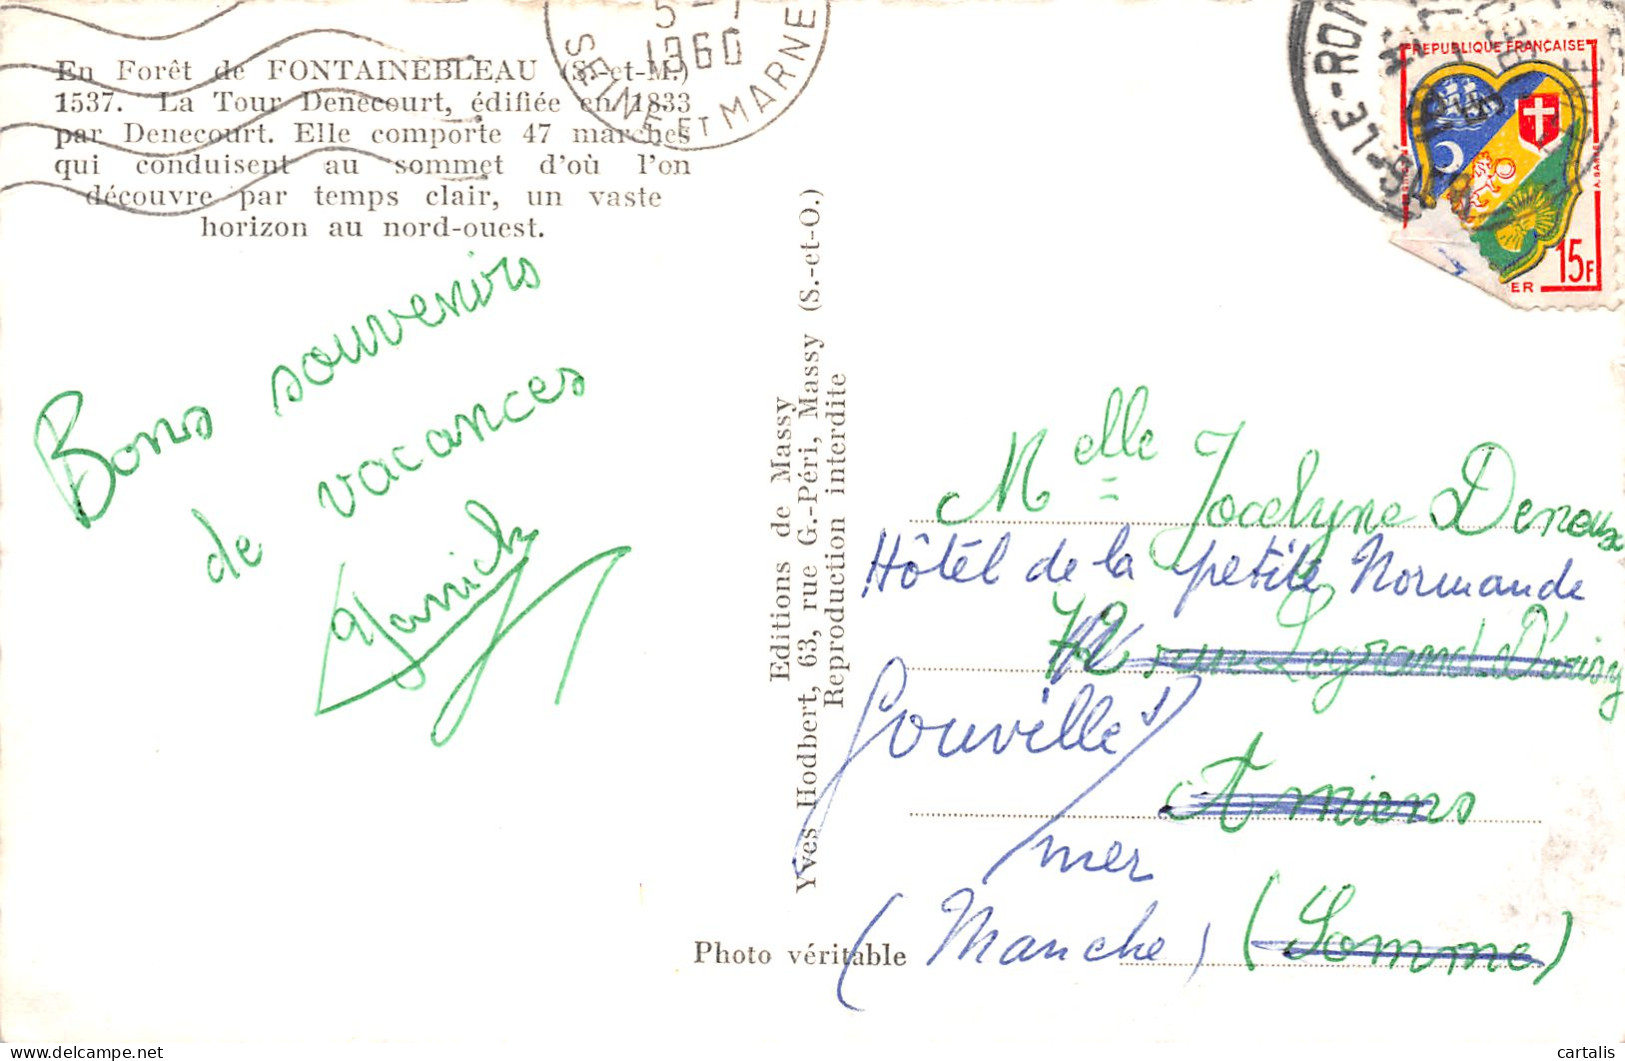 En Forêt de FONTAINEBLEAU (S.-et-M.)
1537. La Tour Denecourt, édifiée en 1833
par Denecourt. Elle comporte 47 marches
qui conduisent au sommet d'où l'on
découvre par temps clair, un vaste
horizon au nord-ouest.
1960
SEINE ET MARNE
Bons souvenirs
de vacances
Yannick
Editions de Massy
Yves Hodbert, 63, rue G.-Péri, Massy (S.-et-O.)
Reproduction interdite
Photo véritable
REPUBLIQUE FRANÇAISE
15F
LE-ROI
Melle Jocelyne Denoux
Hôtel de la petite Normande
72 rue Legrand Daussy
Gouville s/
Amiens
mer
(Manche) (Somme)
cartalis